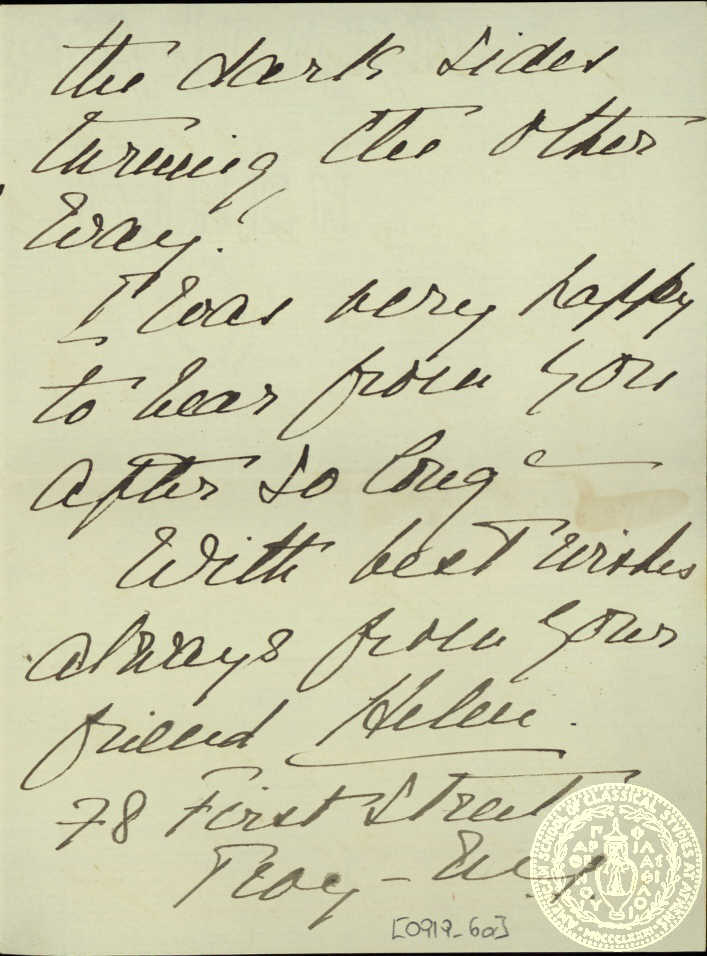 the dark sides
turning the other
way."
I was very happy
to hear from you
after so long —
With best wishes
always from your
friend Helen.
78 First Street
Troy - N.Y.
[0919_6a]
AMERICAN SCHOOL OF CLASSICAL STUDIES AT ATHENS
ΠΑΡΘΕΝΟΥ
ΦΙΛΑΣ ΦΙΛΟΙ
MDCCCLXXXI